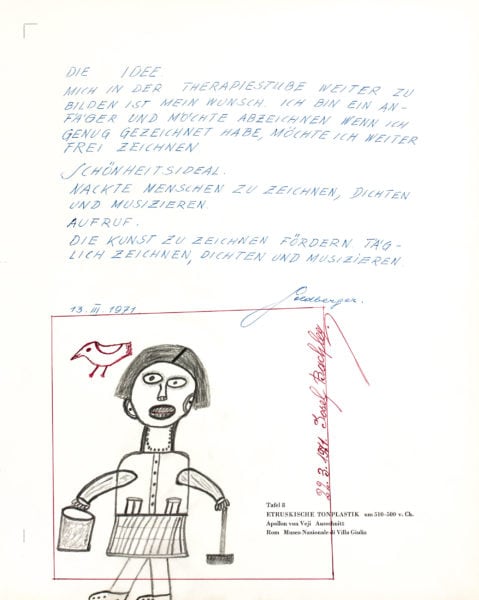 DIE IDEE.
MICH IN DER THERAPIESTUBE WEITER ZU
BILDEN IST MEIN WUNSCH. ICH BIN EIN AN-
FÄGER UND MÖCHTE ABZEICHNEN WENN ICH
GENUG GEZEICHNET HABE, MÖCHTE ICH WEITER
FREI ZEICHNEN
SCHÖNHEITSIDEAL.
NACKTE MENSCHEN ZU ZEICHNEN, DICHTEN
UND MUSIZIEREN.
AUFRUF.
DIE KUNST ZU ZEICHNEN FÖRDERN. TÄG-
LICH ZEICHNEN, DICHTEN UND MUSIZIEREN.
Goldberger.
13. III. 1971
22.3.1971 Josef
Tafel 8
ETRUSKISCHE TONPLASTIK um 510–500 v. Ch.
Apollon von Veji Ausschnitt
Rom Museo Nazionale di Villa Giulia